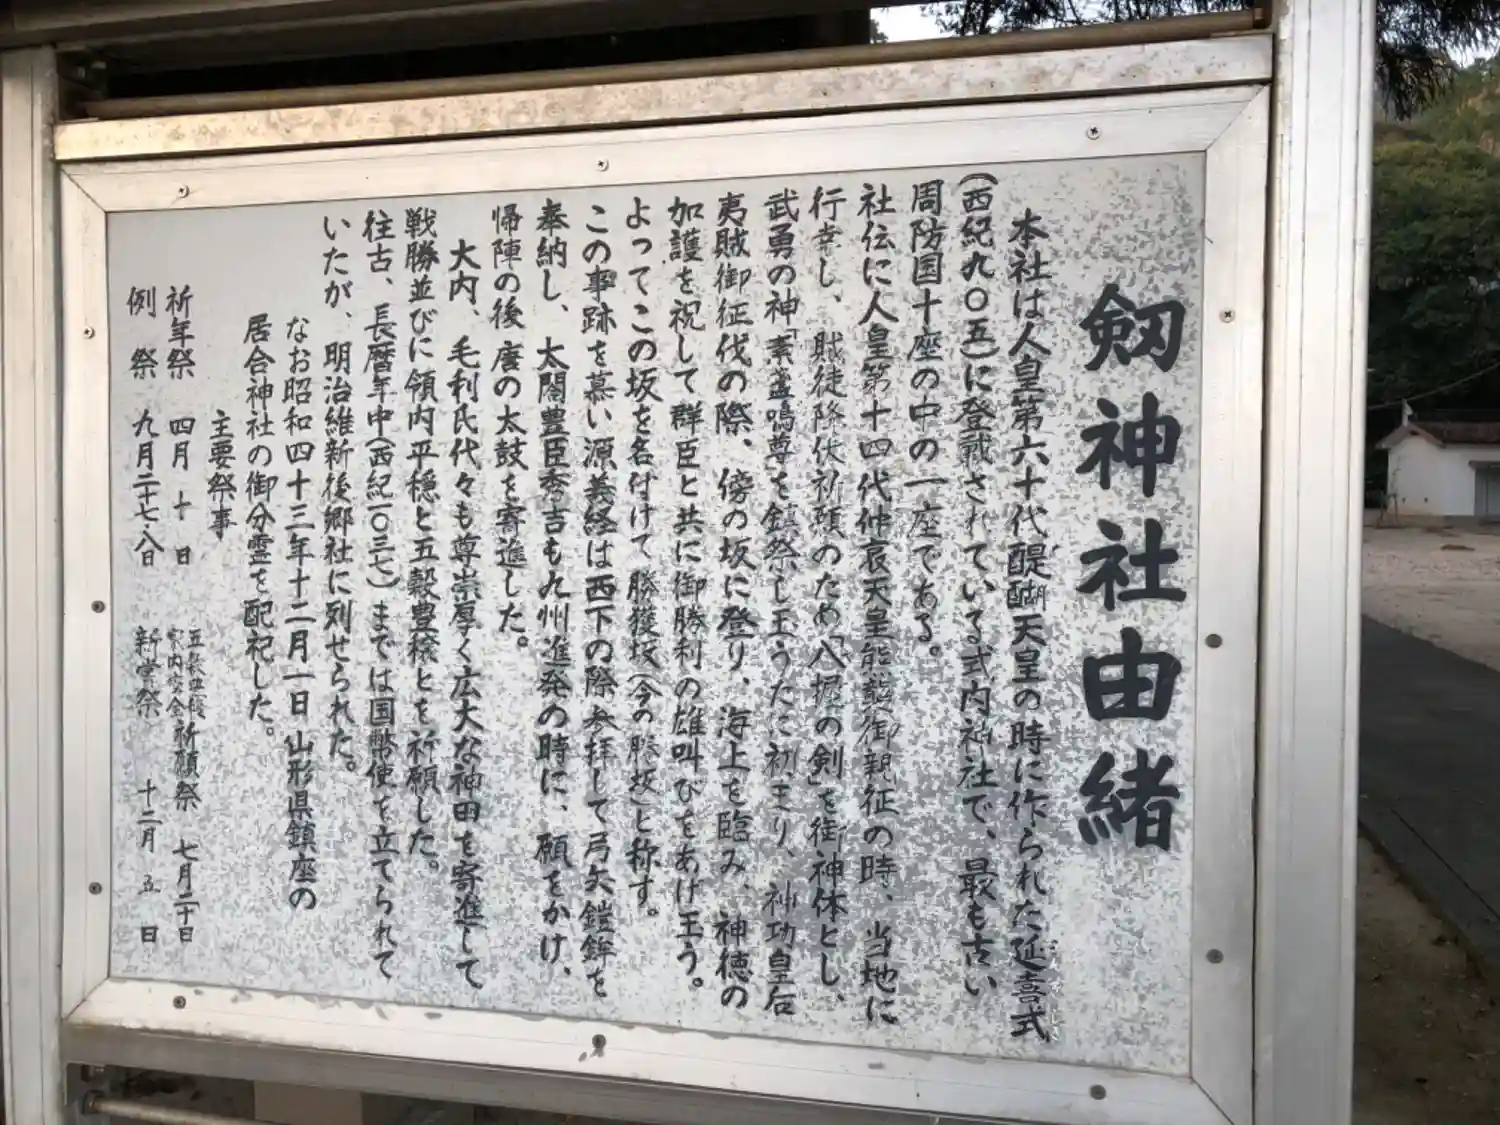 剱神社由緒
本社は人皇第六十代醍醐天皇の時に作られた延喜式
(西紀九〇五)に登載されている式内社で、最も古い
周防国十座の中の一座である。
社伝に人皇第十四代仲哀天皇熊襲御親征の時、当地に
行幸し、賊徒降伏祈願のため「八握の剣」を御神体とし、
武勇の神「素盞鳴尊」を鎮祭し玉うたに初まり、神功皇后
夷賊御征伐の際、傍の坂に登り、海上を臨み、神徳の
加護を祝して群臣と共に御勝利の雄叫びをあげ玉う。
よってこの坂を名付けて勝獲坂(今の勝坂)と称す。
この事跡を慕い源義経は西下の際参拝して弓矢鎧鉾を
奉納し、太閤豊臣秀吉も九州進発の時に、願をかけ、
帰陣の後唐の太鼓を寄進した。
大内、毛利氏代々も尊崇厚く広大な神田を寄進して
戦勝並びに領内平穏と五穀豊穣とを祈願した。
往古、長暦年中(西紀一〇三七)までは国幣使を立てられて
いたが、明治維新後郷社に列せられた。
なお昭和四十三年十二月一日山形県鎮座の
居合神社の御分霊を配祀した。
主要祭事
祈年祭 四月十日 五穀豊穣家内安全祈願祭 七月二十日
例祭 九月二十七、八日 新嘗祭 十二月五日